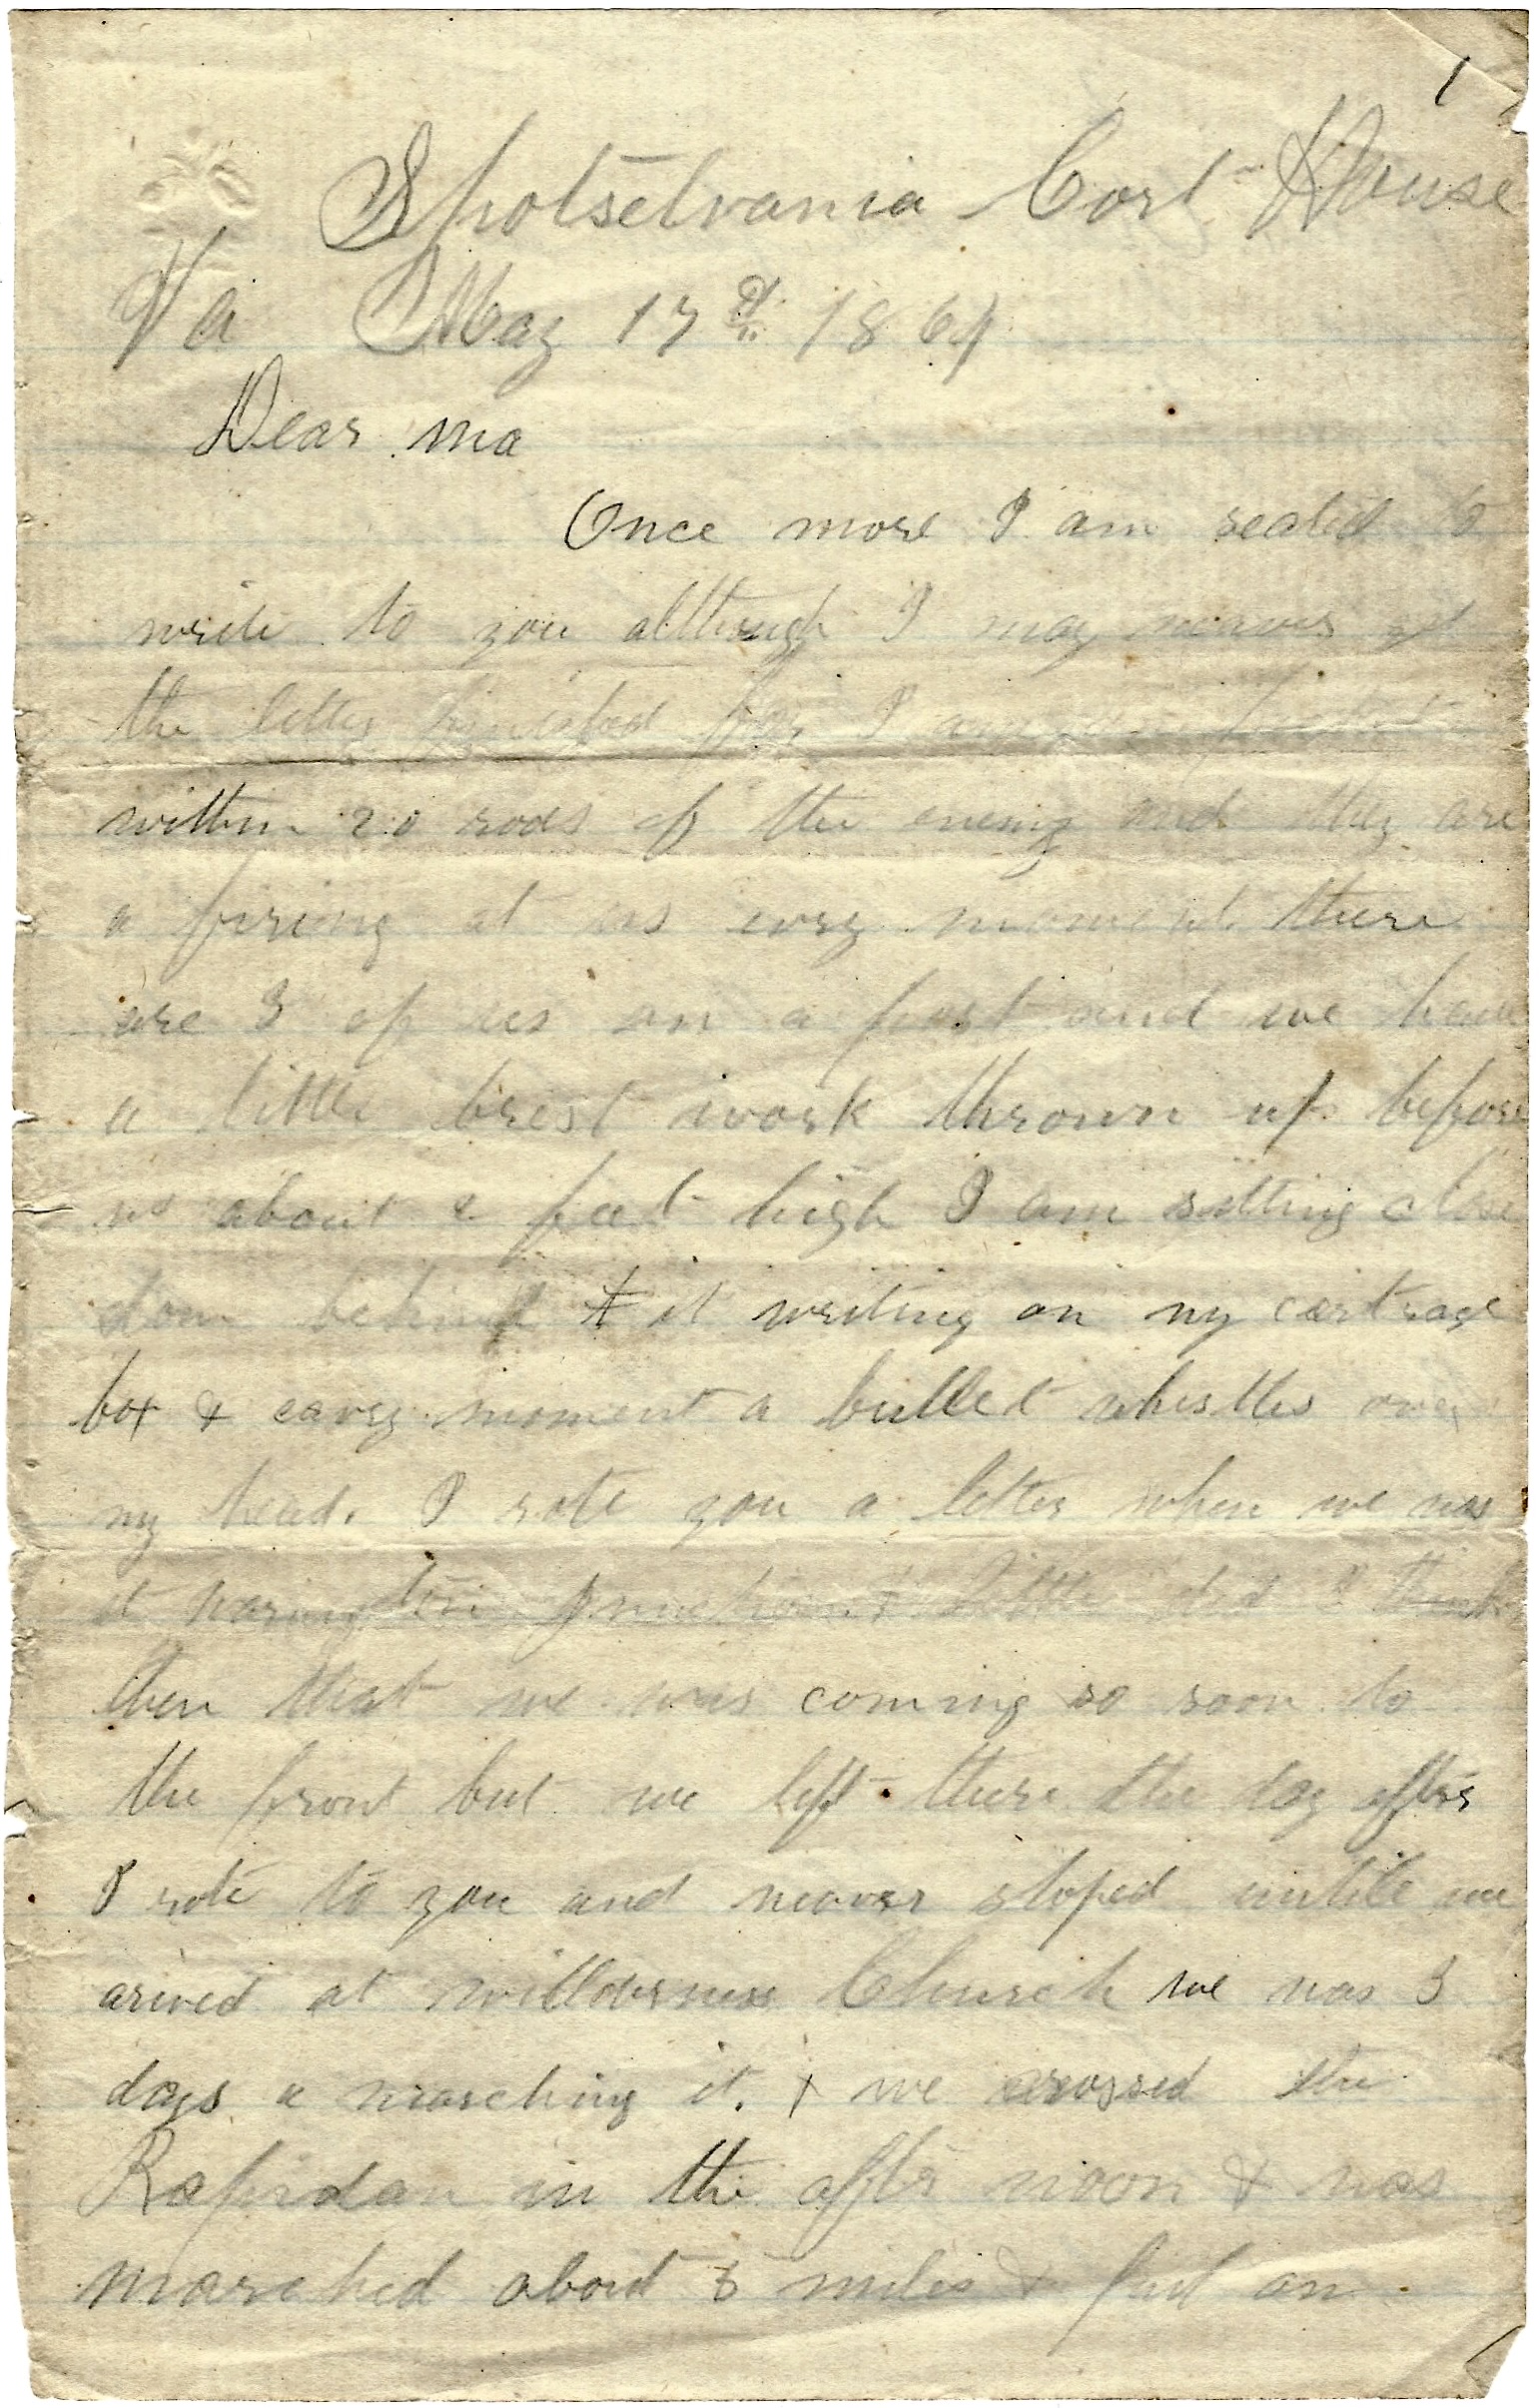 1
Spotselvania Cort House
Va May 17th 1864
Dear ma
Once more I am seated to
write to you although I may neaver get
the letter finished for I am
within 20 rods of the enemy and they are
a firing at us evry moment. there
are 3 of us on a post and we have
a little brest work thrown up before
us about 2 feet high I am setting close
down behind it writing on my cartrage
box & eavry moment a bullet whistles over
my head. I rote you a letter when we was
at Warington Junction & little did I think
then that we was coming so soon to
the front but we left there the day after
I rote to you and never stoped untill we
arived at willderness Church we was 3
days a marching it. & we crossed the
Rapidan in the after noon & was
marched about 5 miles & put on